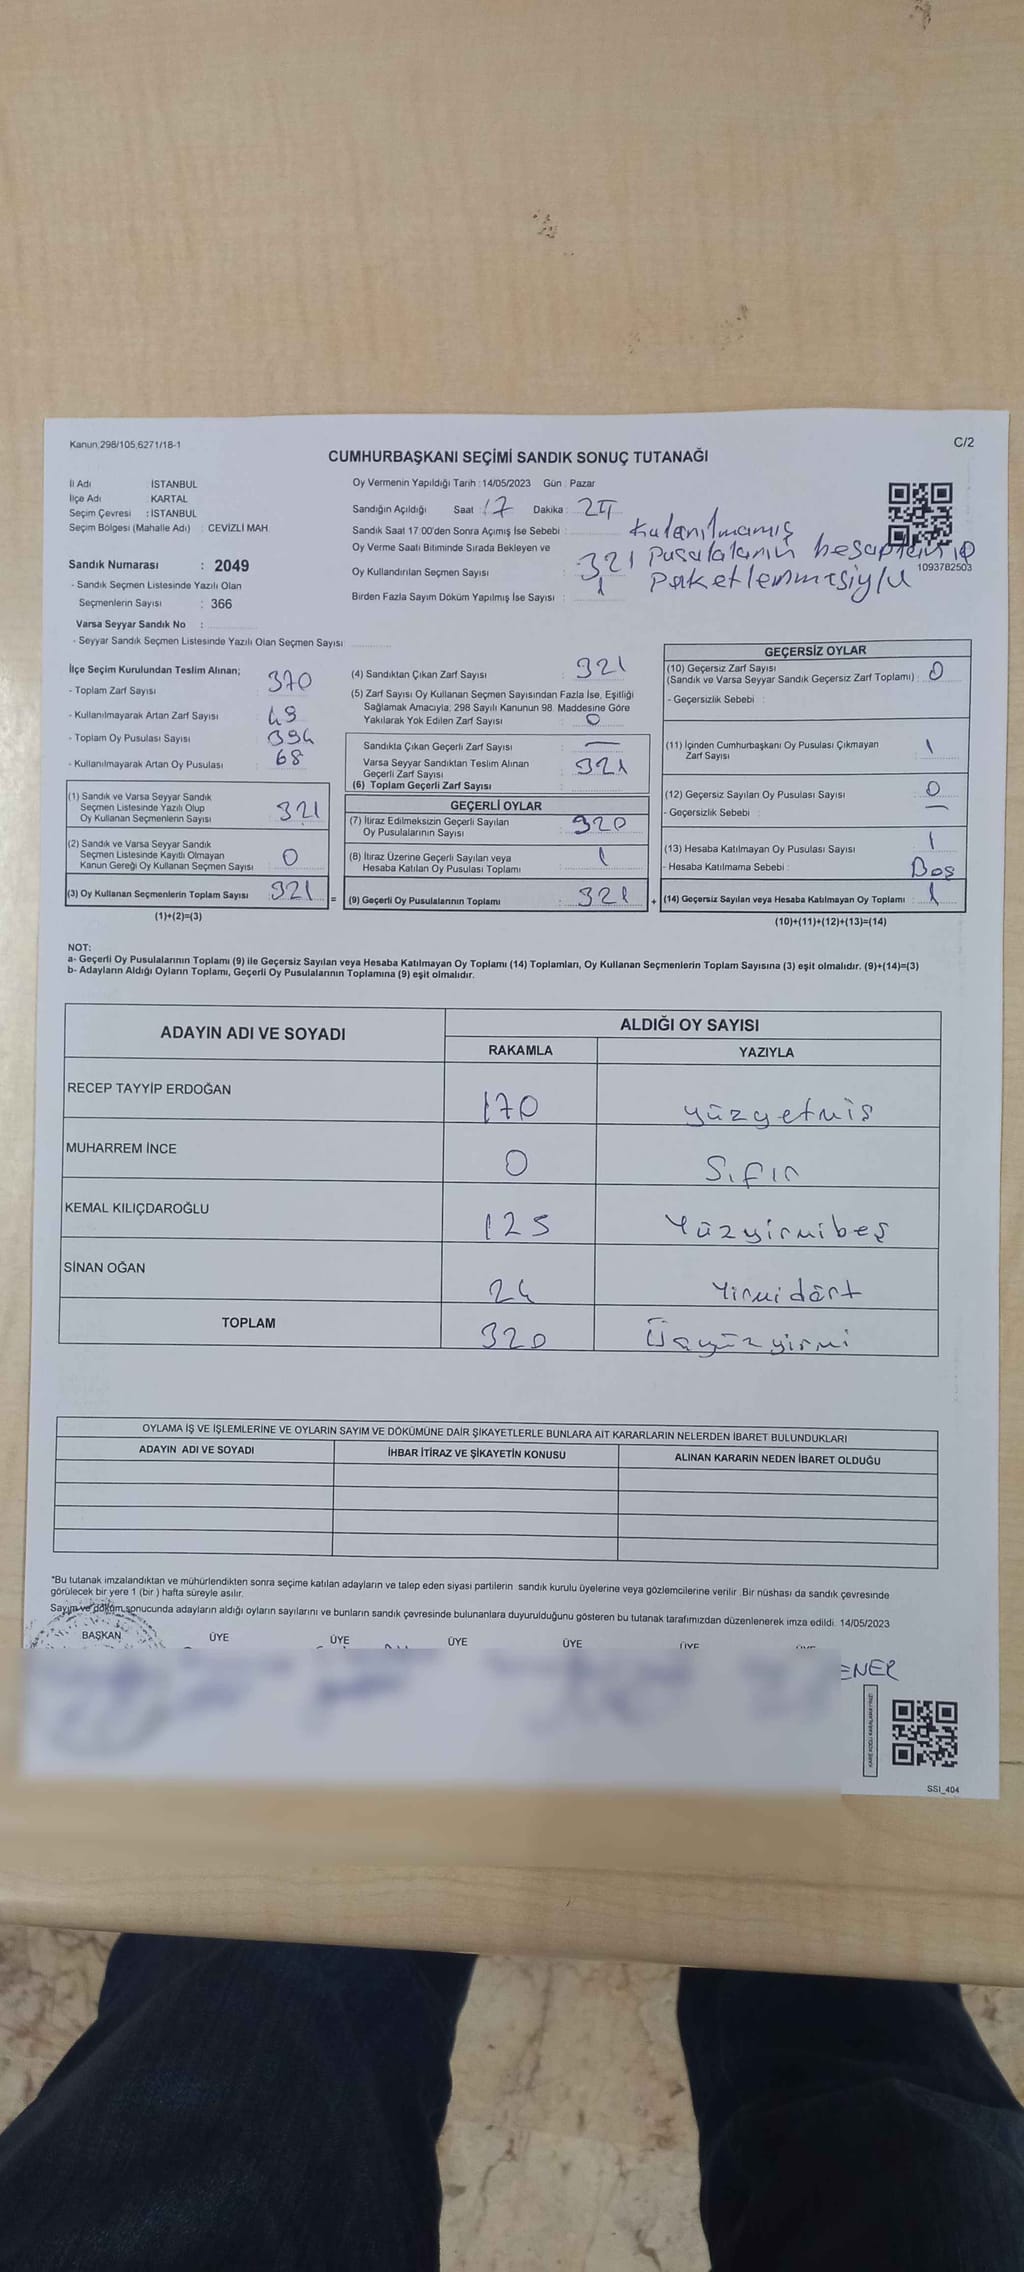 Kanun;298/105,6271/18-1
C/2
CUMHURBAŞKANI SEÇİMİ SANDIK SONUÇ TUTANAĞI
İl Adı İSTANBUL
İlçe Adı KARTAL
Seçim Çevresi : İSTANBUL
Seçim Bölgesi (Mahalle Adı) : CEVİZLİ MAH
Sandık Numarası : 2049
- Sandık Seçmen Listesinde Yazılı Olan
Seçmenlerin Sayısı : 366
Varsa Seyyar Sandık No :
- Seyyar Sandık Seçmen Listesinde Yazılı Olan Seçmen Sayısı
Oy Vermenin Yapıldığı Tarih : 14/05/2023 Gün : Pazar
Sandığın Açıldığı Saat : 17 Dakika :
Sandık Saat 17:00'den Sonra Açımış İse Sebebi : Kulanılmamış
Oy Verme Saati Bitiminde Sırada Bekleyen ve
Oy Kullandırılan Seçmen Sayısı : 321 Pusulalarının
Birden Fazla Sayım Döküm Yapılmış İse Sayısı : 1 Paketlenmesiyle
1093782503
İlçe Seçim Kurulundan Teslim Alınan;
- Toplam Zarf Sayısı 370
- Kullanılmayarak Artan Zarf Sayısı 49
- Toplam Oy Pusulası Sayısı 394
- Kullanılmayarak Artan Oy Pusulası 68
(1) Sandık ve Varsa Seyyar Sandık
Seçmen Listesinde Yazılı Olup
Oy Kullanan Seçmenlerin Sayısı 321
(2) Sandık ve Varsa Seyyar Sandık
Seçmen Listesinde Kayıtlı Olmayan
Kanun Gereği Oy Kullanan Seçmen Sayısı 0
(3) Oy Kullanan Seçmenlerin Toplam Sayısı 321 =
(1)+(2)=(3)
(4) Sandıktan Çıkan Zarf Sayısı 321
(5) Zarf Sayısı Oy Kullanan Seçmen Sayısından Fazla İse, Eşitliği
Sağlamak Amacıyla; 298 Sayılı Kanunun 98. Maddesine Göre
Yakılarak Yok Edilen Zarf Sayısı : 0
Sandıkta Çıkan Geçerli Zarf Sayısı : —
Varsa Seyyar Sandıktan Teslim Alınan
Geçerli Zarf Sayısı : 321
(6) Toplam Geçerli Zarf Sayısı
GEÇERLİ OYLAR
(7) İtiraz Edilmeksizin Geçerli Sayılan
Oy Pusulalarının Sayısı : 320
(8) İtiraz Üzerine Geçerli Sayılan veya
Hesaba Katılan Oy Pusulası Toplamı : 1
(9) Geçerli Oy Pusulalarının Toplamı : 321 +
GEÇERSİZ OYLAR
(10) Geçersiz Zarf Sayısı
(Sandık ve Varsa Seyyar Sandık Geçersiz Zarf Toplamı) : 0
- Geçersizlik Sebebi :
(11) İçinden Cumhurbaşkanı Oy Pusulası Çıkmayan
Zarf Sayısı 1
(12) Geçersiz Sayılan Oy Pusulası Sayısı 0
- Geçersizlik Sebebi : —
(13) Hesaba Katılmayan Oy Pusulası Sayısı 1
- Hesaba Katılmama Sebebi : Boş
(14) Geçersiz Sayılan veya Hesaba Katılmayan Oy Toplamı : 1
(10)+(11)+(12)+(13)=(14)
NOT:
a- Geçerli Oy Pusulalarının Toplamı (9) ile Geçersiz Sayılan veya Hesaba Katılmayan Oy Toplamı (14) Toplamları, Oy Kullanan Seçmenlerin Toplam Sayısına (3) eşit olmalıdır. (9)+(14)=(3)
b- Adayların Aldığı Oyların Toplamı, Geçerli Oy Pusulalarının Toplamına (9) eşit olmalıdır.
ADAYIN ADI VE SOYADI ALDIĞI OY SAYISI
RAKAMLA YAZIYLA
RECEP TAYYİP ERDOĞAN 170 yüzyetmiş
MUHARREM İNCE 0 Sıfır
KEMAL KILIÇDAROĞLU 125 Yüzyirmibeş
SİNAN OĞAN 24 Yirmidört
TOPLAM 320 Üçyüzyirmi
OYLAMA İŞ VE İŞLEMLERİNE VE OYLARIN SAYIM VE DÖKÜMÜNE DAİR ŞİKAYETLERLE BUNLARA AİT KARARLARIN NELERDEN İBARET BULUNDUKLARI
ADAYIN ADI VE SOYADI İHBAR İTİRAZ VE ŞİKAYETİN KONUSU ALINAN KARARIN NEDEN İBARET OLDUĞU
*Bu tutanak imzalandıktan ve mühürlendikten sonra seçime katılan adayların ve talep eden siyasi partilerin sandık kurulu üyelerine veya gözlemcilerine verilir .Bir nüshası da sandık çevresinde
görülecek bir yere 1 (bir ) hafta süreyle asılır.
Sayım ve döküm sonucunda adayların aldığı oyların sayılarını ve bunların sandık çevresinde bulunanlara duyurulduğunu gösteren bu tutanak tarafımızdan düzenlenerek imza edildi. 14/05/2023
BAŞKAN ÜYE ÜYE ÜYE ÜYE ÜYE
ENER
SSI_404